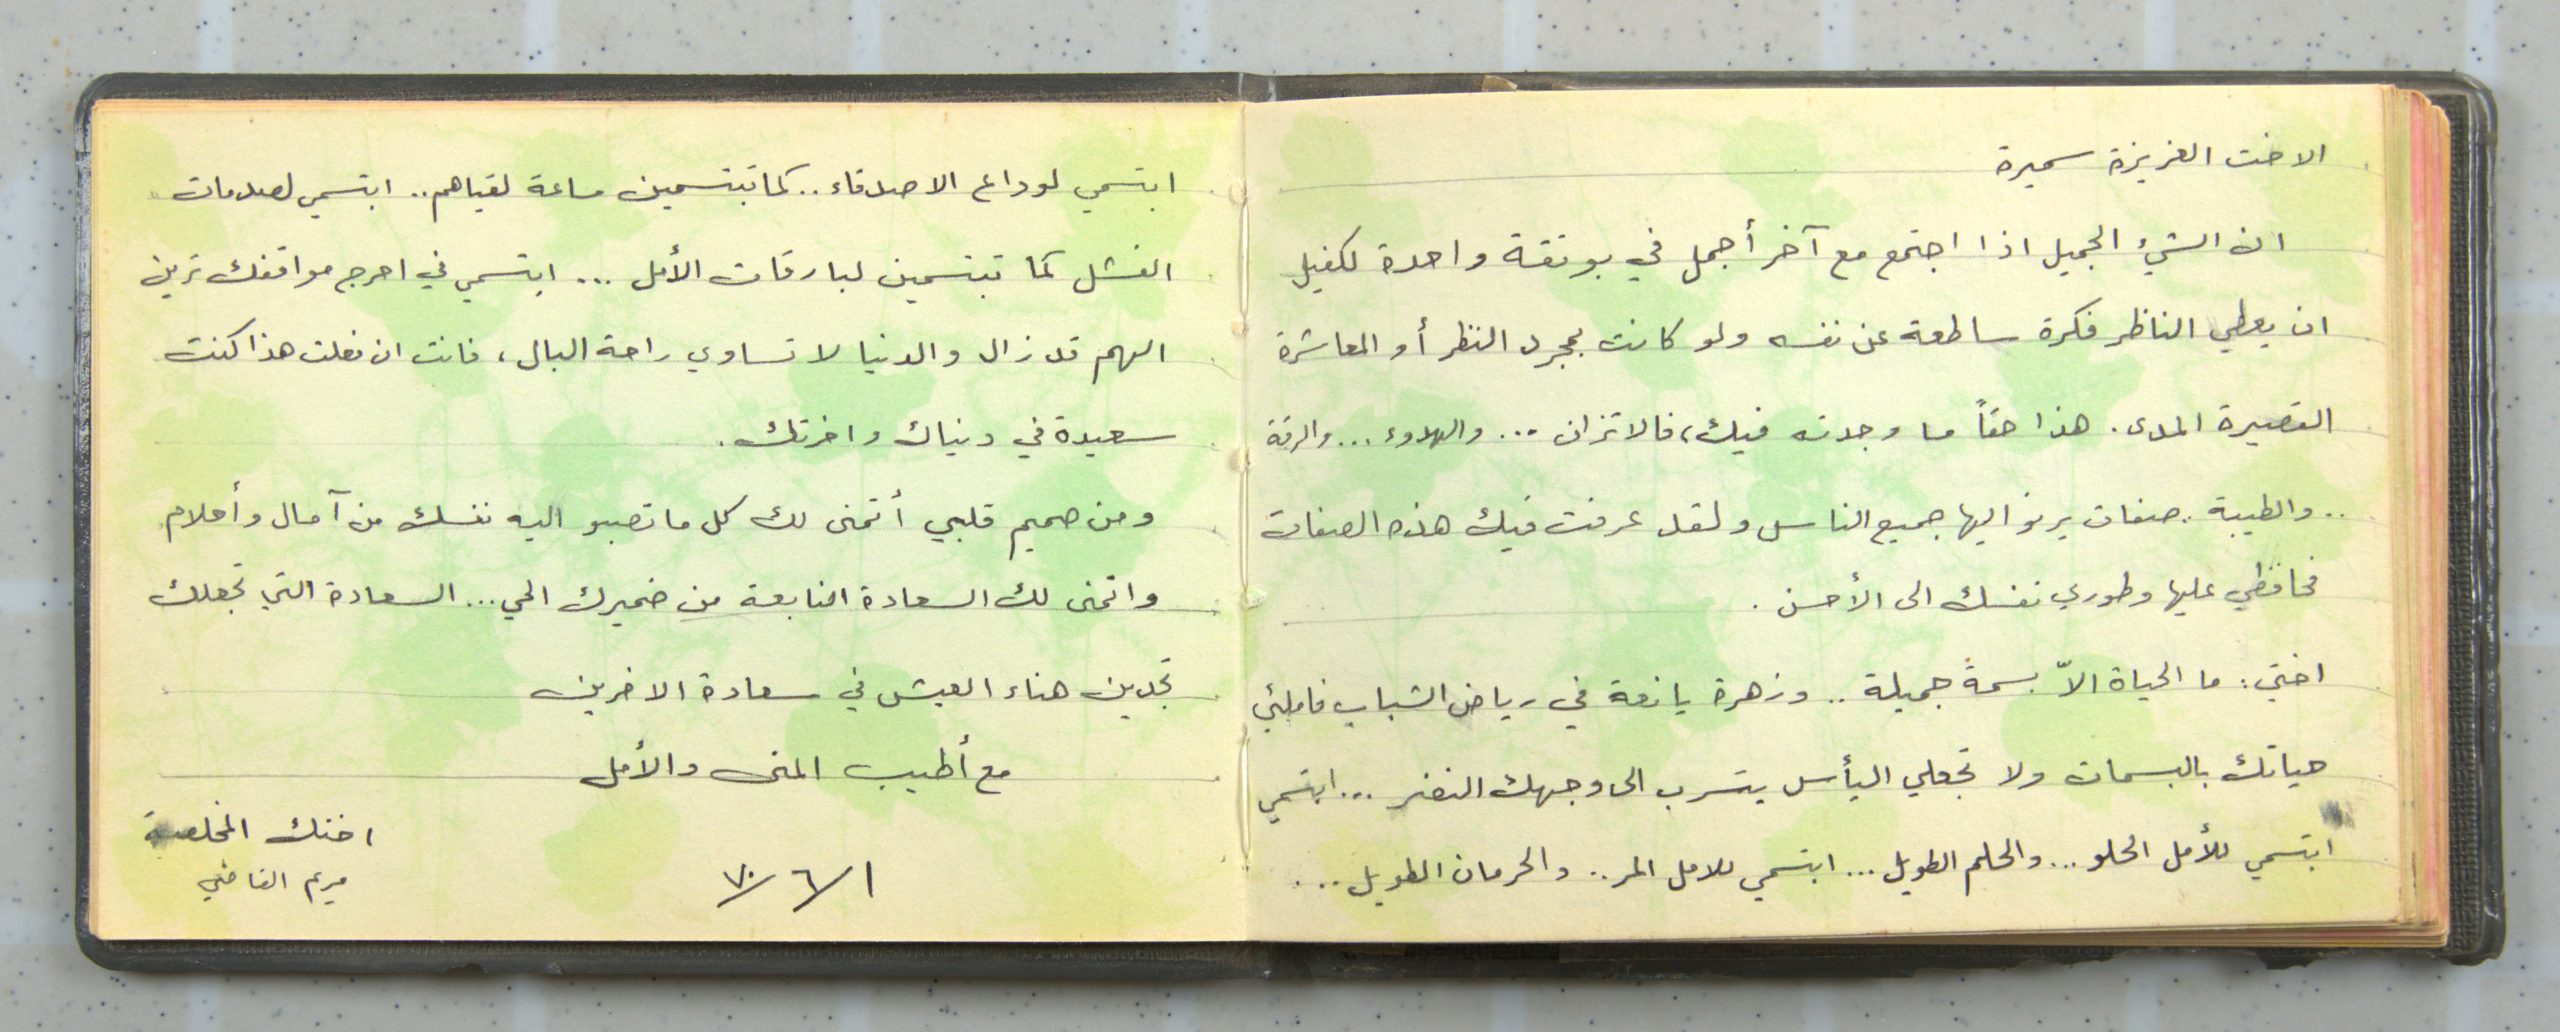 الاخت العزيزة سميرة
ان الشيء الجميل اذا اجتمع مع آخر أجمل في بوتقة واحدة لكفيل
ان يعطي الناظر فكرة ساطعة عن نفسه ولو كانت بمجرد النظر أو المعاشرة
القصيرة المدى. هذا حقاً ما وجدته فيك، فالاتزان ... والهدوء ... والرقة
.. والطيبة .. صفات يرنو اليها جميع الناس ولقد عرفت فيك هذه الصفات
فحافظي عليها وطوري نفسك الى الأحسن .
اختي: ما الحياة الاّ بسمةً جميلة .. وزهرة يانعة في رياض الشباب فاملئي
حياتك بالبسمات ولا تجعلي اليأس يتسرب الى وجهك النضر ... ابتسمي
ابتسمي للأمل الحلو ... والحلم الطويل ... ابتسمي للامل المر .. والحرمان الطويل ...
ابتسمي لوداع الاصدقاء .. كما تبتسمين ساعة لقياهم .. ابتسمي لصدمات
الفشل كما تبتسمين لبارقات الأمل ... ابتسمي في احرج مواقفك ترين
الهم قد زال والدنيا لا تساوي راحة البال ، فانت ان فعلت هذا كنت
سعيدة في دنياك واخرتك .
ومن صميم قلبي أتمنى لك كل ما تصبو اليه نفسك من آمال وأحلام
واتمنى لك السعادة النابعة من ضميرك الحي ... السعادة التي تجعلك
تجدين هناء العيش في سعادة الاخرين
مع أطيب المنى والأمل
اختك المخلصة
مريم القاضي
١/٦/٧٠